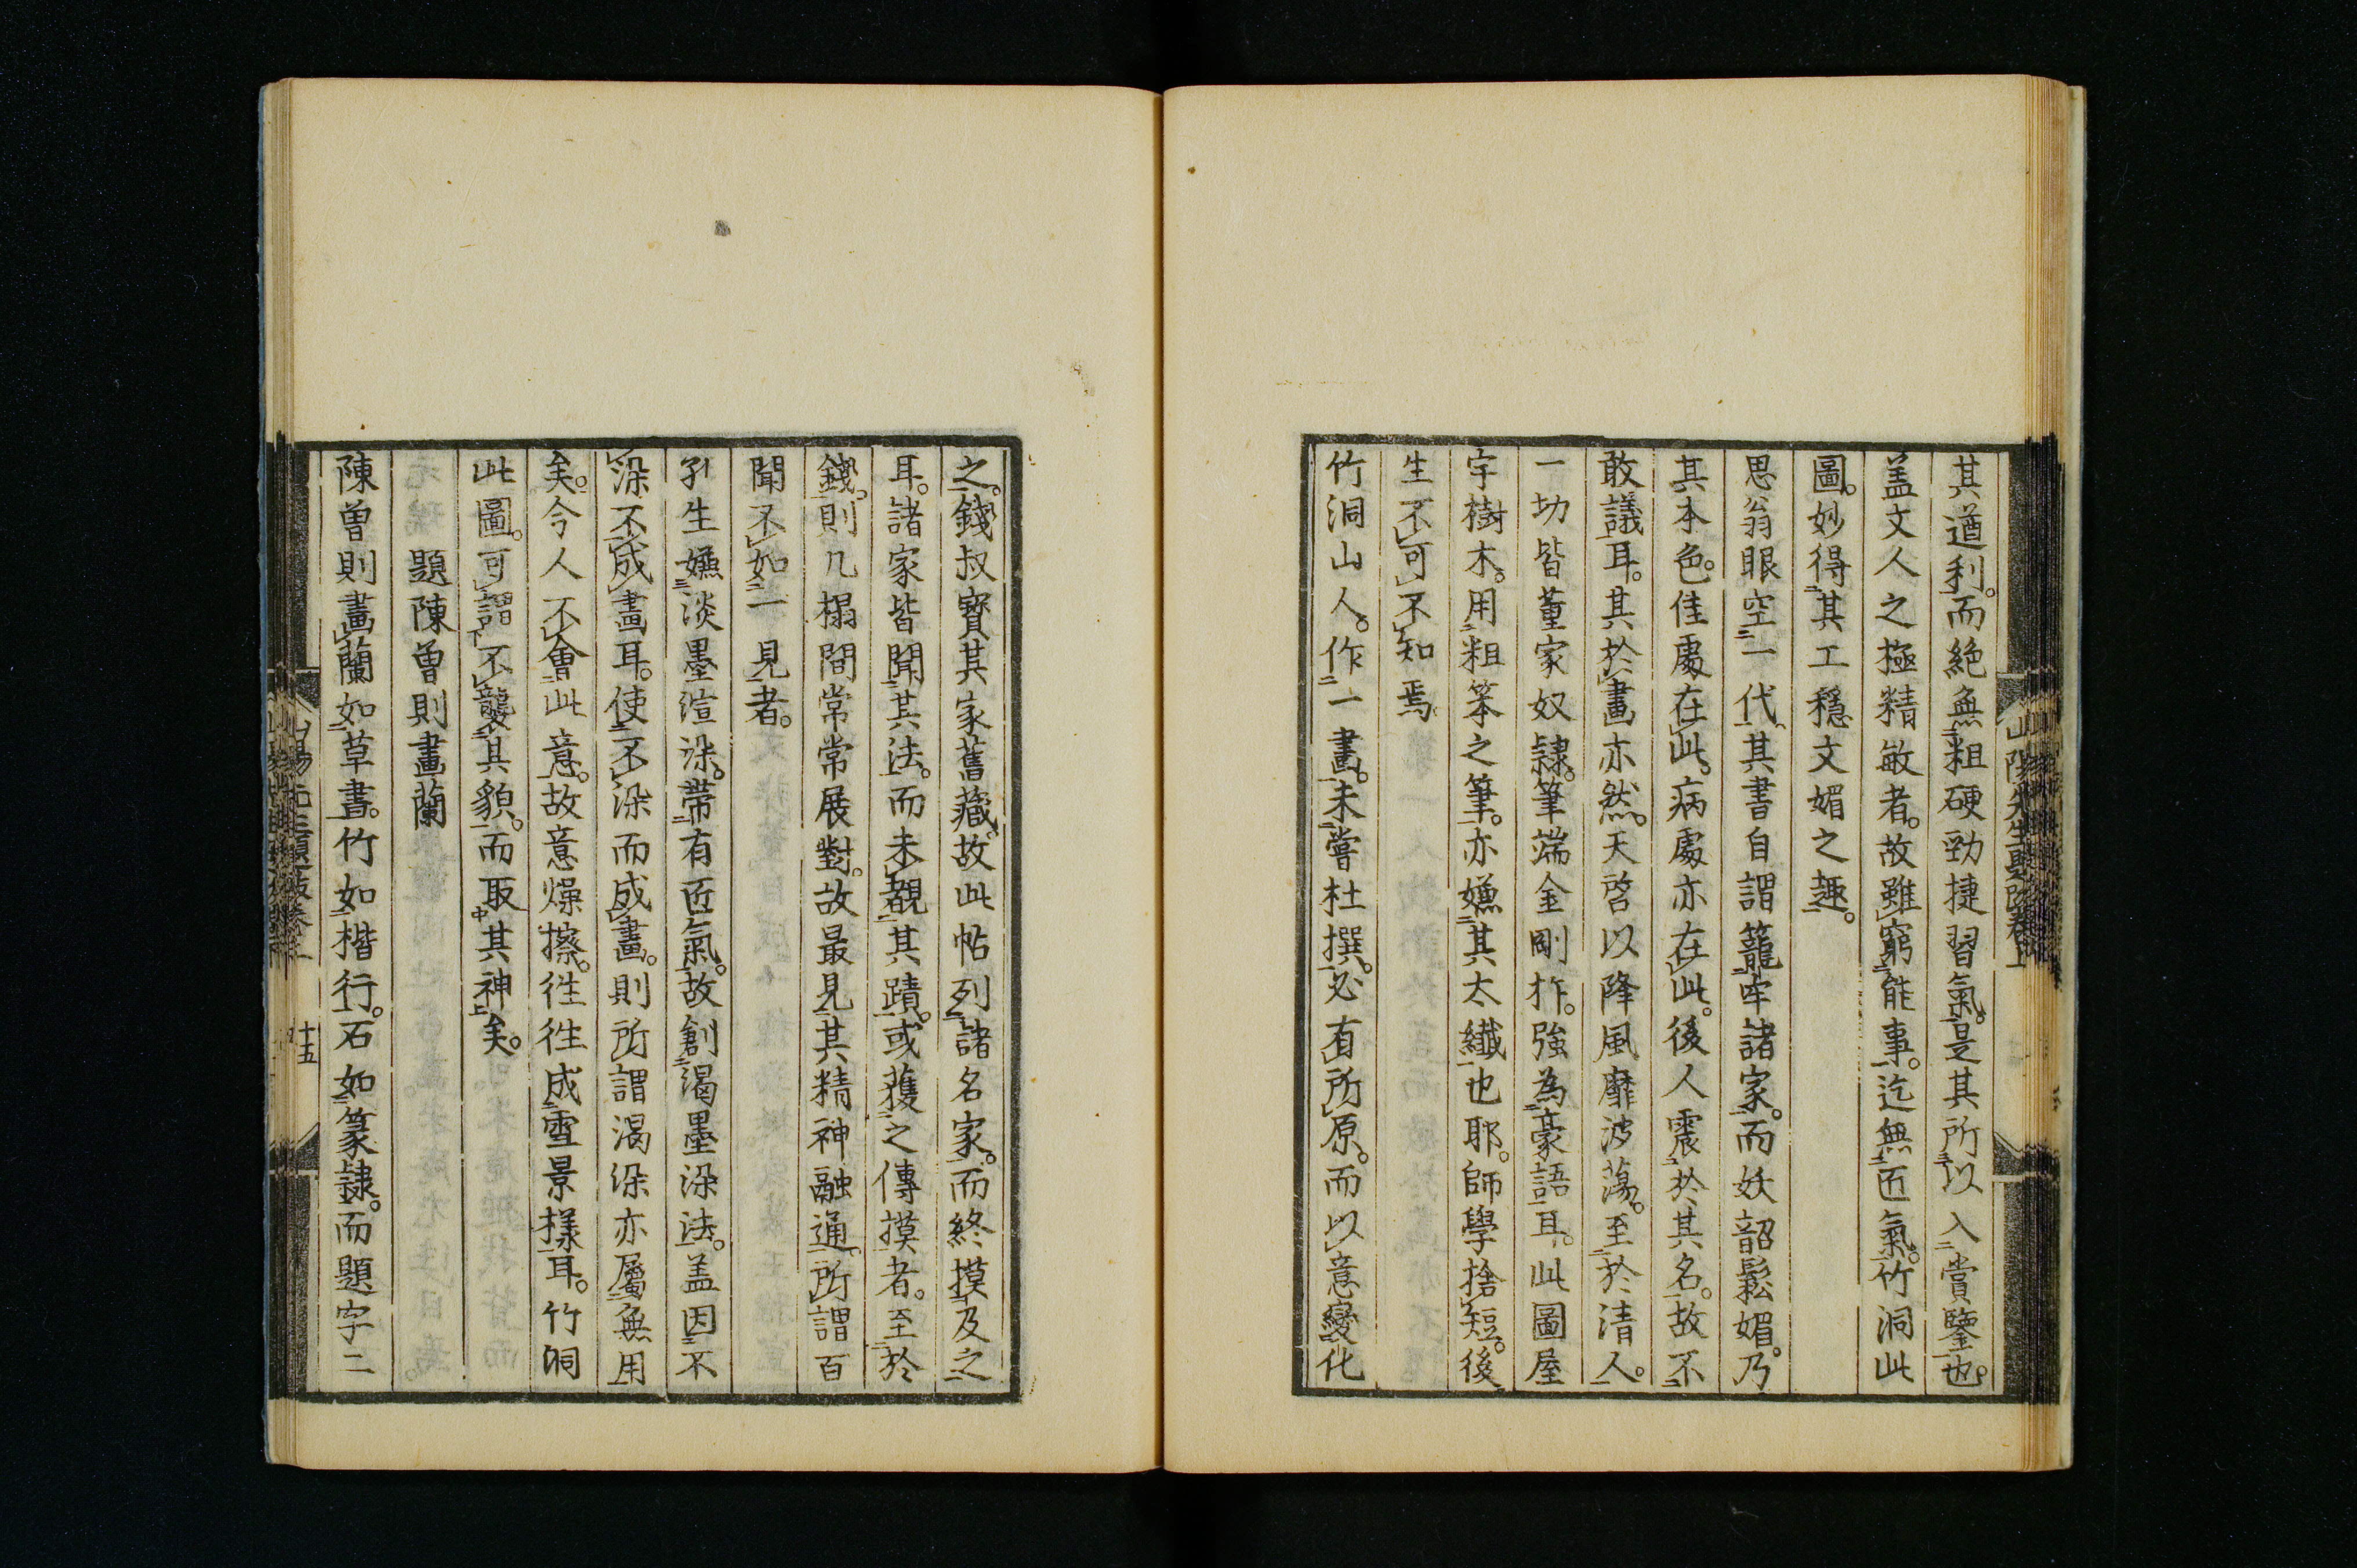 其遒利。而絶無粗硬勁捷習氣。是其所以入賞鑒也。
盖文人之極精敏者。故雖窮能事。迄無匠氣。竹洞此
圖。妙得其工穩文媚之趣。
思翁眼空一代。其書自謂籠牢諸家。而妖韶鬆媚。乃
其本色。佳處在此。病處亦在此。後人震於其名。故不
敢議耳。其於畫亦然。天啓以降風靡波蕩。至於清人。
一切皆董家奴隷。筆端金剛杵。強為豪語耳。此圖屋
宇樹木。用粗笨之筆。亦嫌其太纎也耶。師學捨短。後
生不可不知焉
竹洞山人。作一畫。未嘗杜撰。必有所原。而以意變化
之。錢叔寳其家舊藏。故此帖列諸名家。而終摸及之
耳。諸家皆聞其法。而未覩其蹟。或獲之傳摸者。至於
錢。則几榻間常常展對。故最見其精神融通。所謂百
聞不如一見者。
孔生嫌淡墨渲染。帯有匠氣。故創渇墨染法。盖因不
染不成畫耳。使不染而成畫。則所謂渇染亦屬無用
矣。今人不會此意。故意燥擦。徃徃成雪景様耳。竹洞
此圖。可謂不襲其貌。而取其神矣。
題陳曾則畫蘭
陳曾則畫蘭如草書。竹如楷行。石如篆隷。而題字二
十五